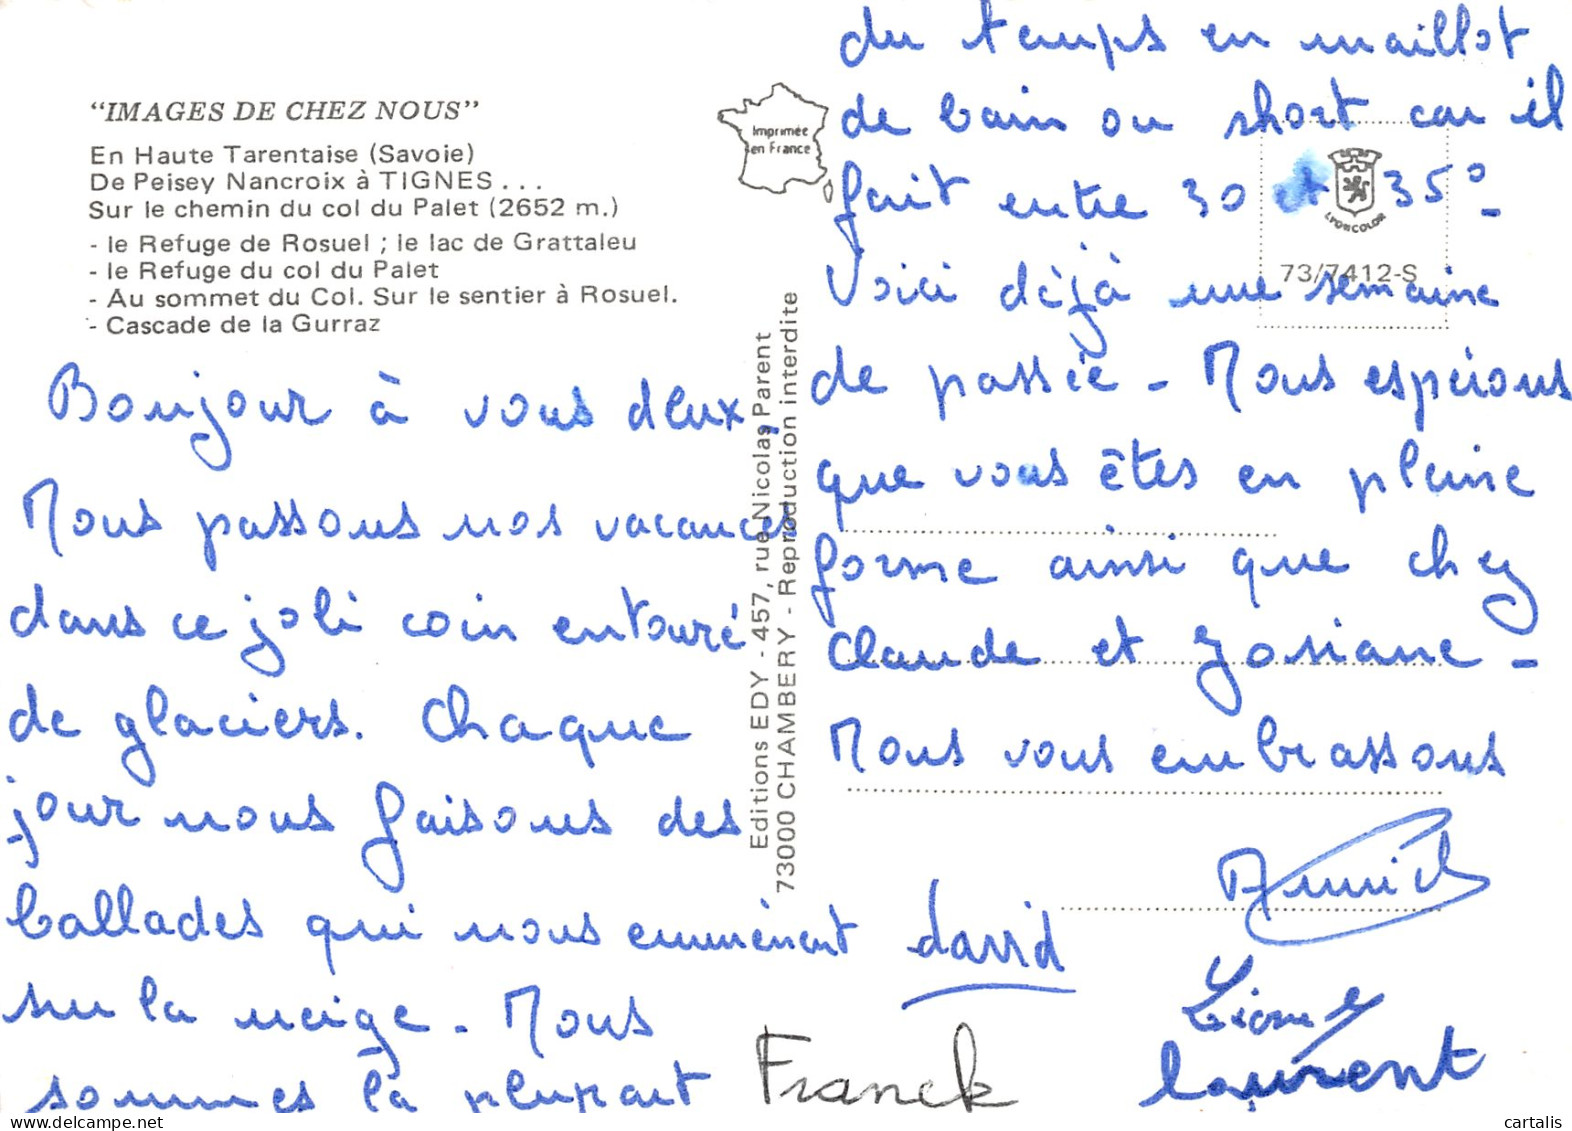 "IMAGES DE CHEZ NOUS"
En Haute Tarentaise (Savoie)
De Peisey Nancroix à TIGNES . . .
Sur le chemin du col du Palet (2652 m.)
- le Refuge de Rosuel ; le lac de Grattaleu
- le Refuge du col du Palet
- Au sommet du Col. Sur le sentier à Rosuel.
- Cascade de la Gurraz
Imprimée
en France
LYONCOLOR
73/7412-S
Editions EDY - 457, rue Nicolas Parent
73000 CHAMBERY - Reproduction interdite
Bonjour à vous deux,
Nous passons nos vacances
dans ce joli coin entouré
de glaciers. Chaque
jour nous faisons des
ballades qui nous emmènent
sur la neige - Nous
sommes la plupart
du temps en maillot
de bain ou short car il
fait entre 30 et 35° -
Voici déjà une semaine
de passée - Nous espérons
que vous êtes en pleine
forme ainsi que chez
Claude et Josiane -
Nous vous embrassons
Annick
david
Lionel
Franck
laurent
cartalis